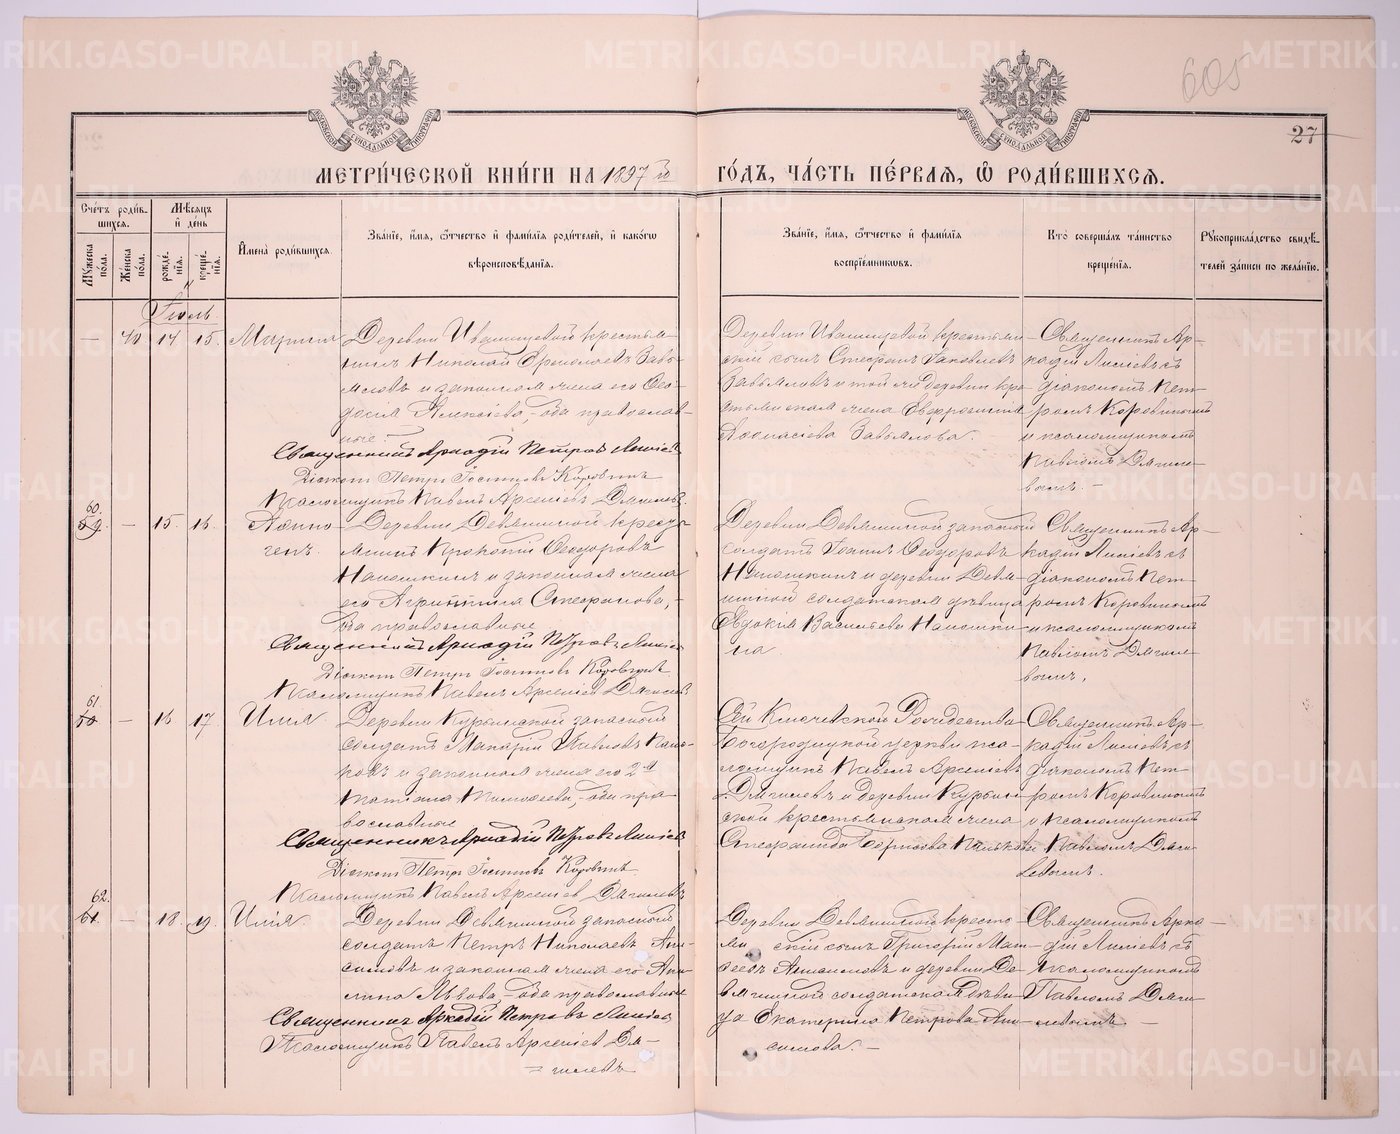 605
27
МЕТРИЧЕСКОЙ КНИГИ НА 1897 го
ГОДЪ, ЧАСТЬ ПЕРВАЯ, Ѡ РОДИВШИХСЯ.
Счетъ родившихся.
Мужеска пола.
Женска пола.
Мѣсяцъ и день
рожденія.
крещенія.
Имена родившихся.
Званіе, имя, отчество и фамилія родителей, и какогѡ
вѣроисповѣданія.
Званіе, имя, отчество и фамилія
воспріемниковъ.
Кто совершалъ таинство
крещенія.
Рукоприкладство свидѣ-
телей записи по желанію.
Іюль
— 40 14 15. Марина
Деревни Ивашцевой крестья-
нинъ Николай Ермолаевъ Завь-
яловъ и законная жена его Ѳео-
досія Алексіева, оба православ-
ные.
Священникъ Аркадій Петровъ Лисіевъ
Діаконъ Петръ Іосифовъ Коровинъ
Псаломщикъ Павелъ Арсеніевъ Дягилевъ
Деревни Ивашцевой крестьян-
скій сынъ Стефанъ Іаковлевъ
Завьяловъ и той же деревни кре-
стьянская жена Евфросинія
Аѳанасіева Завьялова.
Священникъ Ар-
кадій Лисіевъ съ
діакономъ Пет-
ромъ Коровинымъ
и псаломщикомъ
Павломъ Дягиле-
вымъ. —
60.
59. — 15. 16. Аѳино-
генъ.
Деревни Девяшиной кресть-
янинъ Прокопій Ѳеодоровъ
Напошкинъ и законная жена
его Агриппина Стефанова, —
оба православные
Священникъ Аркадій Петровъ Лисіевъ
Діаконъ Петръ Іосифовъ Коровинъ
Псаломщикъ Павелъ Арсеніевъ Дягилевъ
Деревни Девяшиной запасный
солдатъ Іоаннъ Ѳеодоровъ
Напошкинъ и деревни Девя-
шиной солдатская дѣвица
Евдокія Васильева Напошки-
на.
Священникъ Ар-
кадій Лисіевъ съ
діакономъ Пет-
ромъ Коровинымъ
и псаломщикомъ
Павломъ Дягиле-
вымъ.
61.
60 — 16 17. Илія.
Деревни Курьинской запасный
солдатъ Макарій Павловъ
и законная жена его 2й
Татіана Тимоѳеева, оба пра-
вославные
Священникъ Аркадій Петровъ Лисіевъ
Діаконъ Петръ Іосифовъ Коровинъ
Псаломщикъ Павелъ Арсеніевъ Дягилевъ
Сей Ключевской Рождества
Богородицкой церкви пса-
ломщикъ Павелъ Арсеніевъ
Дягилевъ и деревни Курьин-
ской крестьянская жена
Стефанида Борисова
Священникъ Ар-
кадій Лисіевъ съ
діакономъ Пет-
ромъ Коровинымъ
и псаломщикомъ
Павломъ Дяги-
левымъ.
62.
61. — 18. 19. Илія.
Деревни Девяшиной запасный
солдатъ Петръ Николаевъ Ани-
симовъ и законная жена его Аки-
лина Львова, — оба православные
Священникъ Аркадій Петровъ Лисіевъ
Псаломщикъ Павелъ Арсеніевъ Дя-
= гилевъ
Деревни Девяшиной кресть-
янскій сынъ Григорій Мат-
ѳеевъ Анисимовъ и деревни Де-
вяшиной солдатская дѣви-
ца Екатерина Петрова Ани-
симова. —
Священникъ Арка-
дій Лисіевъ съ
псаломщикомъ
Павломъ Дяги-
левымъ —